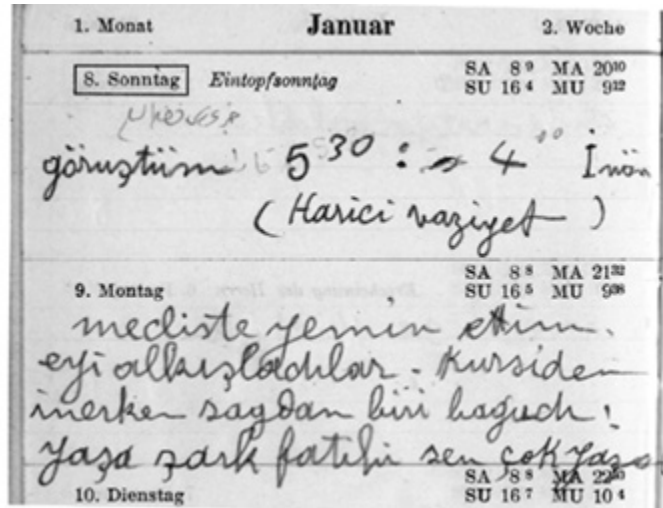 1. Monat Januar 2. Woche
8. Sonntag Eintopfsonntag SA 8 9 MA 20 10
SU 16 4 MU 9 22
görüştüm 5 30 : 4 İnön
(Harici vaziyet)
9. Montag SA 8 8 MA 21 32
SU 16 5 MU 9 38
mecliste yemin ettim.
eyi alkışladılar. Kursiden
inerken sağdan biri bağırdı:
Yaşa şark fatihi sen çok yaşa
10. Dienstag SA 8 8 MA
SU 16 7 MU 10 4